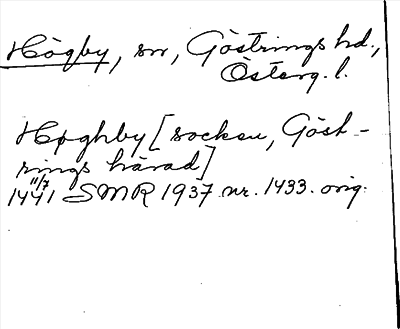 Högby, sn, Göstrings hd.,
Österg. l.
Høghby [socken, Göst-
rings härad]
11/7
1441 SMR 1937 nr. 1433. orig.